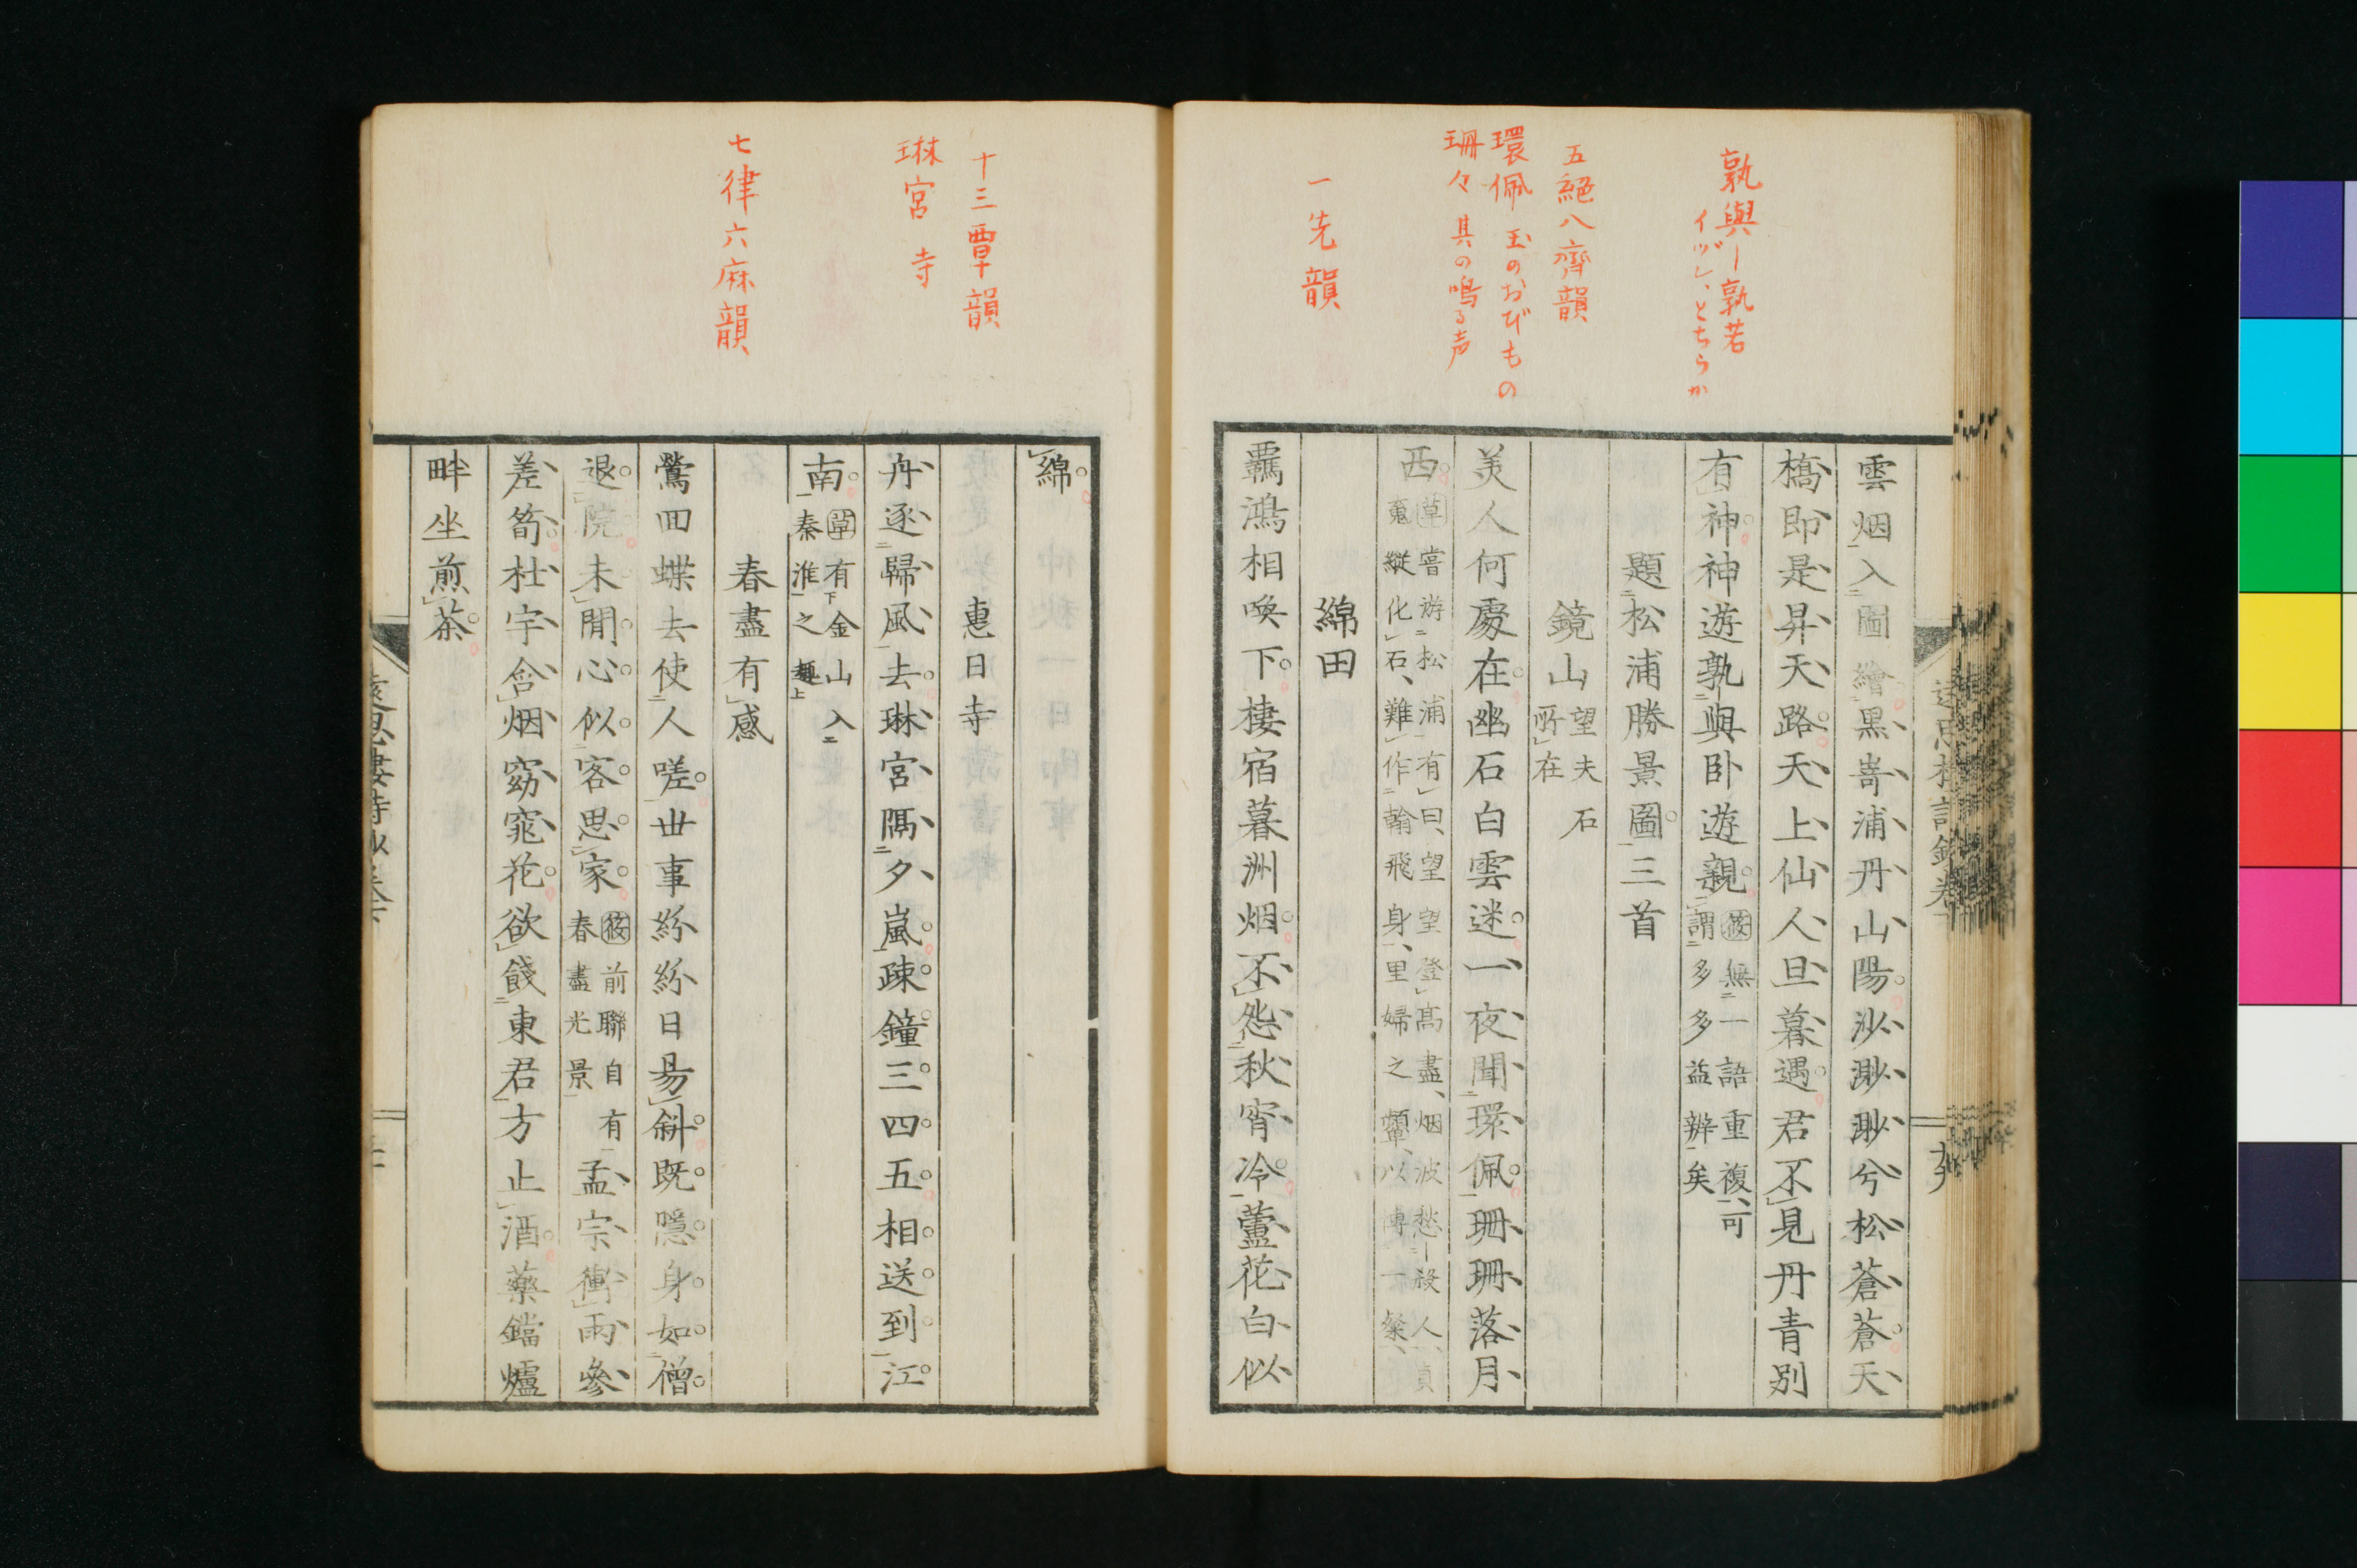 孰與―孰若
イヅレ、とちらか
五絕八齊韻
環佩 玉のおびもの
珊々 其の鳴る声
一先韻
雲烟入圖繪黒嵜浦丹山陽沙渺渺兮松蒼蒼天
橋即是昇天路天上仙人旦暮遇君不見丹青別
有神神遊孰與臥遊親
筱無一語重複可
謂多多益辨矣
題松浦勝景圖三首
鏡山
望夫石
所在
美人何處在幽石白雲迷一夜聞環佩珊珊落月
西
草嘗游松浦有曰望望登高盡烟波愁殺人貞
魂縱化石難作翰飛身里婦之顰以博一粲
綿田
羈鴻相喚下棲宿暮洲烟不怨秋宵冷蘆花白似
十三覃韻
琳宮 寺
七律六麻韻
綿
惠日寺
舟逐歸風去琳宮隔夕嵐疎鐘三四五相送到江
南
草有金山入
秦淮之趣
春盡有感
鶯回蝶去使人嗟世事紛紛日易斜既隱身如僧
退院未閒心似客思家
筱前聯自有
春盡光景
孟宗衝雨參
差筍杜宇含烟窈窕花欲餞東君方止酒藥鐺爐
畔坐煎茶
遠思樓詩鈔卷下